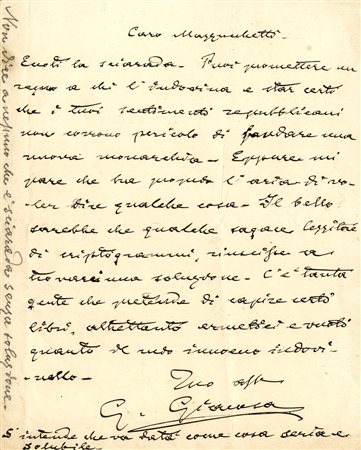 Caro Mazzucchetti.
Eccoti la sciarada. Puoi promettere un
regno a chi l'indovina e star certo
che i tuoi sentimenti repubblicani
non corrono pericolo di fondare una
nuova monarchia. Eppure mi
pare che ha proprio l'aria di vo-
ler dire qualche cosa. Il bello
sarebbe che qualche sagace lettore
di criptogrammi, riuscisse a
trovarci una soluzione. C'è tanta
gente che pretende di capire certi
libri, altrettanto ermetici e vuoti
quanto il mio innocuo indovi-
nello.
Tuo aff
G. Giacosa
S'intende che va data come cosa seria e
solubile.
Non dire a nessuno che è sciarada senza soluzione.